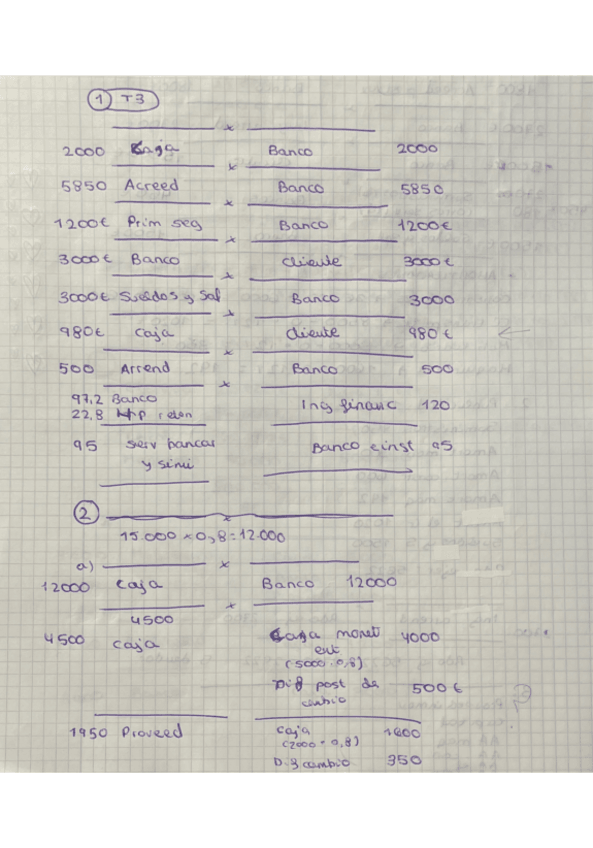 1 T3
2000 Caja Banco 2000
5850 Acreed Banco 5850
1200€ Prim seg Banco 1200€
3000€ Banco cliente 3000€
3000€ Sueldos y Sal Banco 3000
980€ Caja cliente 980€
500 Arrend Banco 500
97,2 Banco Ing financ 120
22,8 HP reten
95 serv bancar Banco einst 95
y simi
2
15.000 × 0,8 = 12.000
a)
12000 Caja Banco 12000
4500
4500 caja Caja monet 4000
ext
(5000 · 0,8)
Dif post de 500€
cambio
1950 Proveed Caja 1600
(2000 · 0,8)
Dif cambio 350